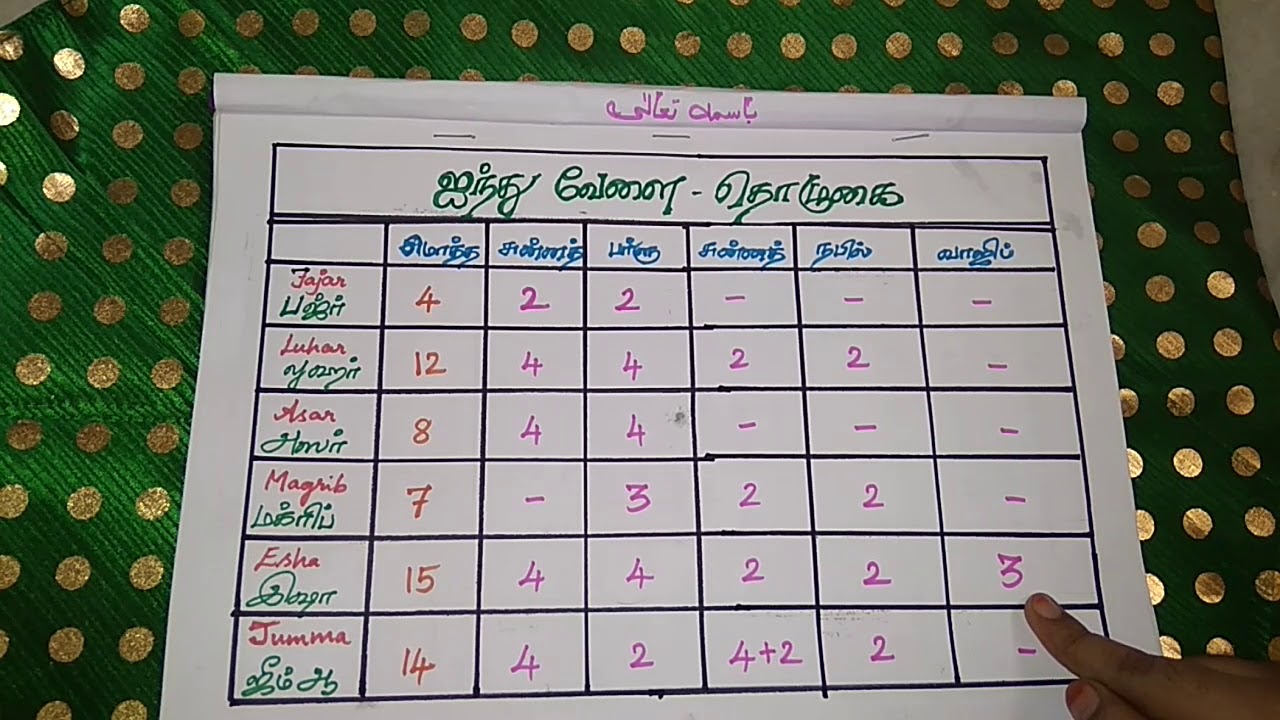 باسمه تعالى
ஐந்து வேளை - தொழுகை
மொத்த சுன்னத் பர்ளு சுன்னத் நபில் வாஜிப்
Fajar
பஜ்ர் 4 2 2 - - -
Luhar
லுஹர் 12 4 4 2 2 -
Asar
அஸர் 8 4 4 - - -
Magrib
மக்ரிப் 7 - 3 2 2 -
Esha
இஷா 15 4 4 2 2 3
Jumma
ஜீம்ஆ 14 4 2 4+2 2 -